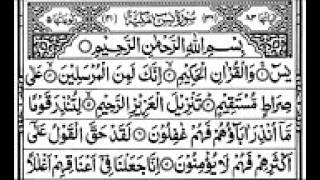 سُوْرَةُ يٰسٓ مَكِّيَّةٌ
بِسْمِ اللّٰهِ الرَّحْمٰنِ الرَّحِيْمِ
يٰسٓ ۚ وَالْقُرْاٰنِ الْحَكِيْمِ ۙ اِنَّكَ لَمِنَ الْمُرْسَلِيْنَ ۙ عَلٰى
صِرَاطٍ مُّسْتَقِيْمٍ ؕ تَنْزِيْلَ الْعَزِيْزِ الرَّحِيْمِ ۙ لِتُنْذِرَ قَوْمًا
مَّاۤ اُنْذِرَ اٰبَآؤُهُمْ فَهُمْ غٰفِلُوْنَ لَقَدْ حَقَّ الْقَوْلُ عَلٰۤى
اَكْثَرِهِمْ فَهُمْ لَا يُؤْمِنُوْنَ اِنَّا جَعَلْنَا فِيْۤ اَعْنَاقِهِمْ اَغْلٰلًا